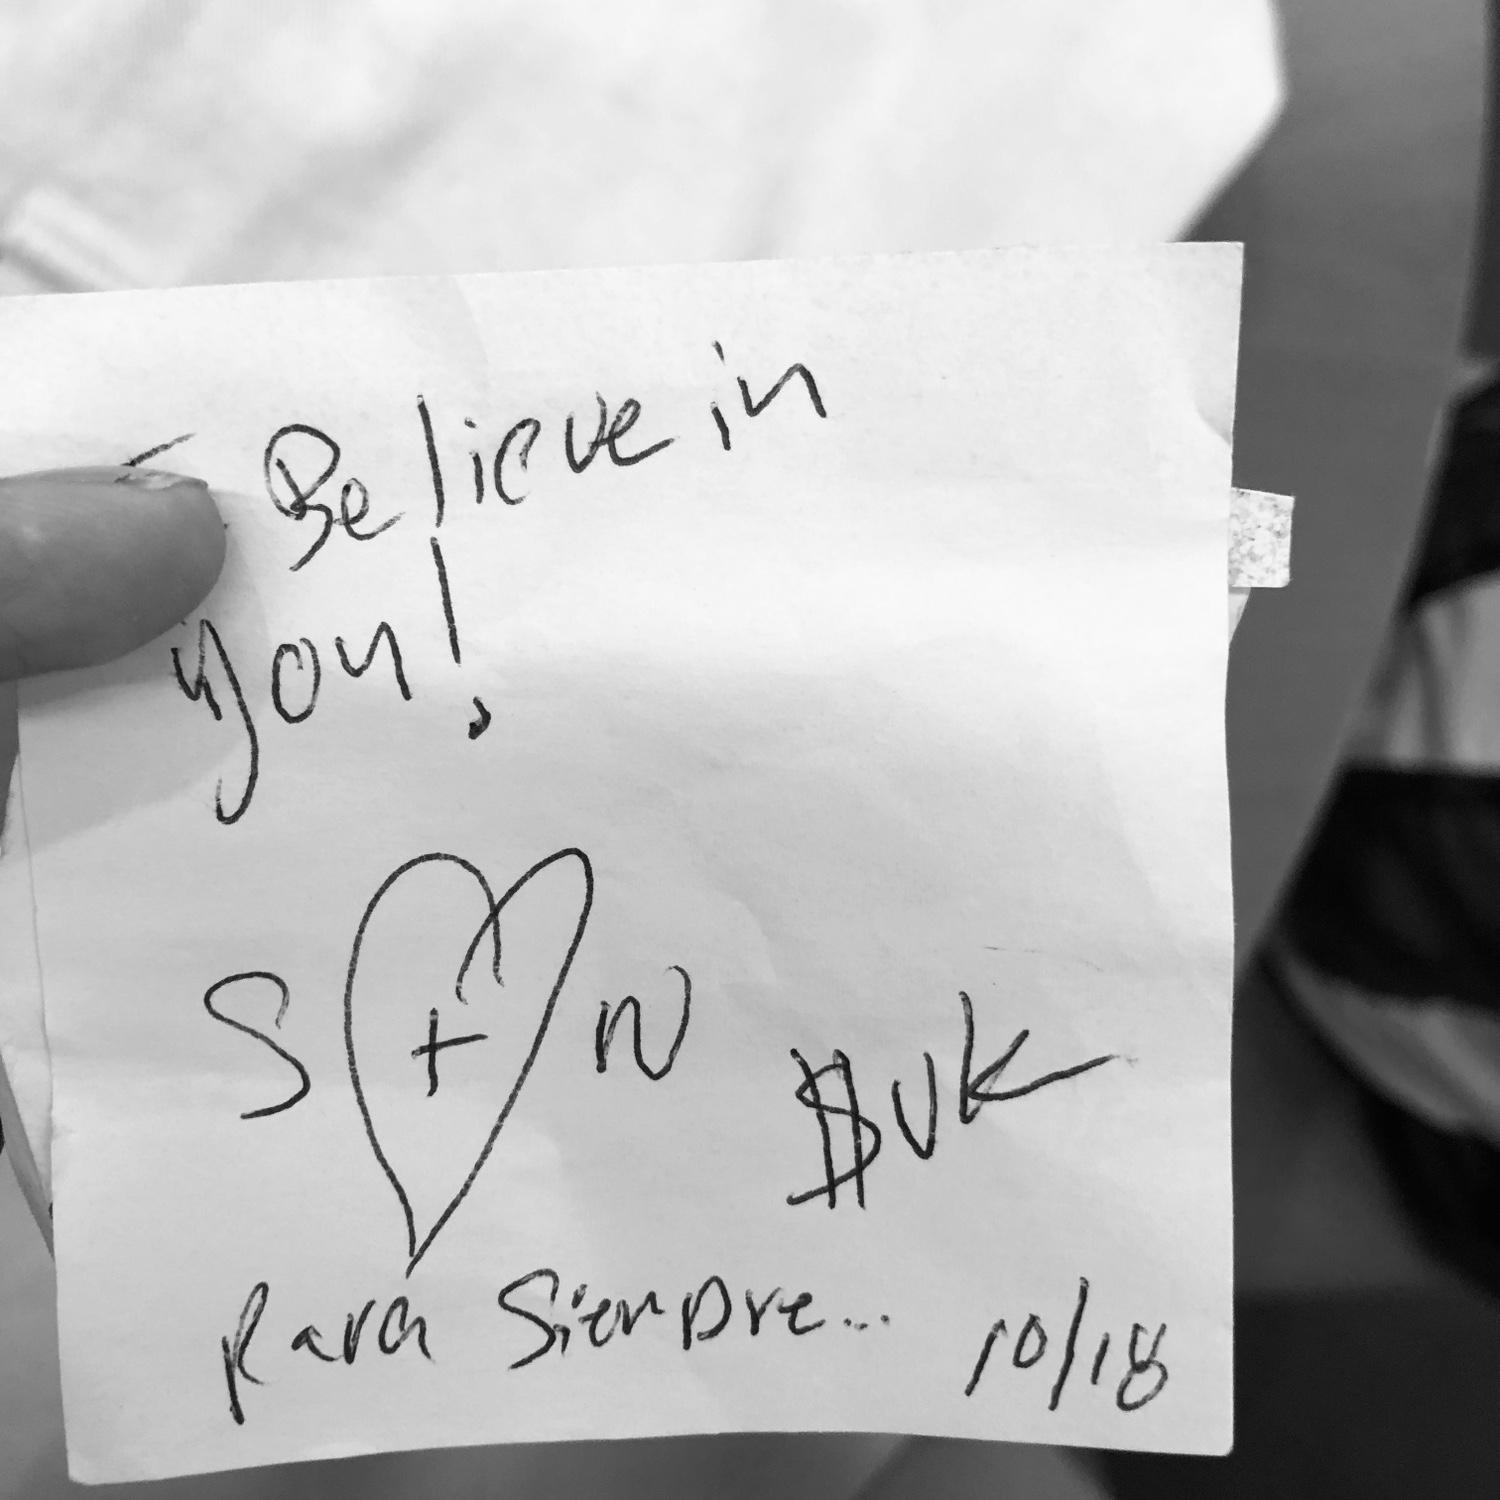 Believe in
you!
S + N
$UK
Para Siempre... 10/18